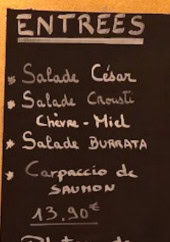 ENTREES
* Salade César
* Salade Crousti
Chèvre - Miel
* Salade BURRATA
* Carpaccio de
SAUMON
13,90€